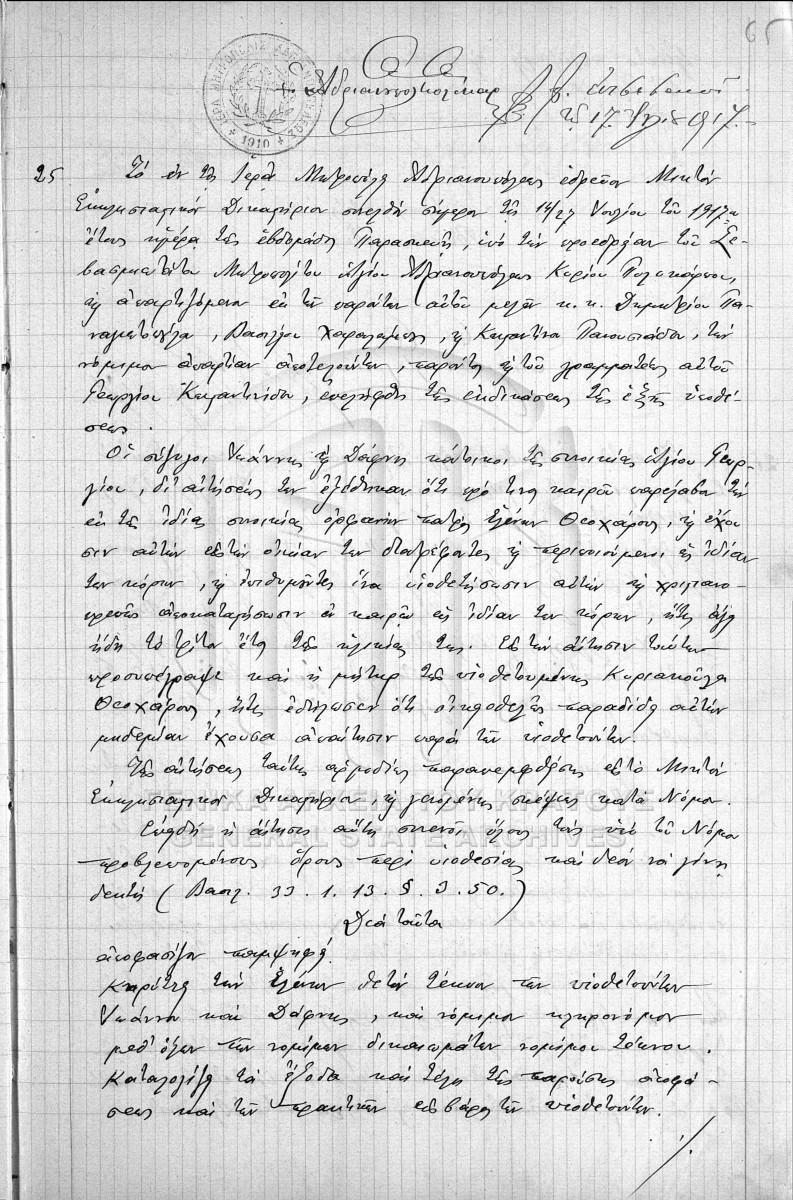 65
ΙΕΡΑ ΜΗΤΡΟΠΟΛΙΣ ΑΔΡΙΑΝΟΥΠΟΛΕΩΣ
1910
τῇ 17 1917.
25 Τὸ ἐν τῇ Ἱερᾷ Μητροπόλει Ἀδριανουπόλεως ἑδρεῦον Μικτὸν
Ἐκκλησιαστικὸν Δικαστήριον συνελθὸν σήμερον τῇ 14/27 Ἰουλίου τοῦ 1917ου
ἔτους ἡμέρᾳ τῆς ἑβδομάδος Παρασκευῇ, ὑπὸ τὴν προεδρείαν τοῦ Σε-
βασμιωτάτου Μητροπολίτου Ἁγίου Ἀδριανουπόλεως Κυρίου Πολυκάρπου,
καὶ ἀπαρτιζόμενον ἐκ τῶν παρόντων αὐτοῦ μελῶν κ. κ. Δημητρίου Πα-
Βασιλείου Χαραλάμπους, καὶ Κωνσταντίνου τὴν
νόμιμον ἀπαρτίαν ἀποτελούντων, παρόντος καὶ τοῦ γραμματέως αὐτοῦ
Γεωργίου Κωνσταντινίδου, ἐπελήφθη τῆς ἐκδικάσεως τῆς ἑξῆς ὑποθέ-
σεως.
Οἱ σύζυγοι Ἰωάννης καὶ Δάφνη κάτοικοι τῆς συνοικίας Ἁγίου Γεωρ-
γίου, δι' αἰτήσεώς των ἐξέθηκαν ὅτι πρό τινος καιροῦ παρέλαβον τὴν
ἐκ τῆς ἰδίας συνοικίας ὀρφανὴν πατρὸς Ἑλένην Θεοχάρους, καὶ ἔχου
σιν αὐτὴν εἰς τὴν οἰκίαν των διατρέφοντες καὶ περιποιούμενοι ὡς ἰδίαν
των κόρην, καὶ ἐπιθυμοῦντες ἵνα υἱοθετήσωσιν αὐτὴν καὶ χριστιανο-
πρεπῶς ἀποκαταστήσωσιν ἐν καιρῷ ὡς ἰδίαν των κόρην, ἥτις ἄγει
ἤδη τὸ τρίτον ἔτος τῆς ἡλικίας της. Εἰς τὴν αἴτησιν ταύτην
προσυπέγραψε καὶ ἡ μήτηρ τῆς υἱοθετουμένης Κυριακούλα
Θεοχάρους, ἥτις ἐδήλωσεν ὅτι οἰκιοθελῶς παραδίδει αὐτὴν
μηδεμίαν ἔχουσα ἀπαίτησιν παρὰ τῶν υἱοθετούντων.
Τῆς αἰτήσεως ταύτης ἁρμοδίως παραπεμφθείσης εἰς τὸ Μικτὸν
Ἐκκλησιαστικὸν Δικαστήριον, καὶ γενομένης σκέψεως κατὰ Νόμον.
Ἐπειδὴ ἡ αἴτησις αὕτη συνενοῖ ὅλους τοὺς ὑπὸ τοῦ Νόμου
προβλεπομένους ὅρους περὶ υἱοθεσίας καὶ δέον νὰ γίνῃ
δεκτὴ (Βασιλ. 33. 1. 13. § 3. 50.)
Διὰ ταῦτα
ἀποφασίζον παμψηφεὶ
Κηρύττει τὴν Ἑλένην θετὸν τέκνον τῶν υἱοθετούντων
Ἰωάννου καὶ Δάφνης, καὶ νόμιμον κληρονόμον
μεθ' ὅλων τῶν νομίμων δικαιωμάτων νομίμου τέκνου.
Καταλογίζει τὰ ἔξοδα καὶ τέλη τῆς παρούσης ἀποφά-
σεως καὶ τῶν πρακτικῶν εἰς βάρος τῶν υἱοθετούντων.
./.
ΓΕΝΙΚΑ ΑΡΧΕΙΑ ΤΟΥ ΚΡΑΤΟΥΣ
GENERAL STATE ARCHIVES